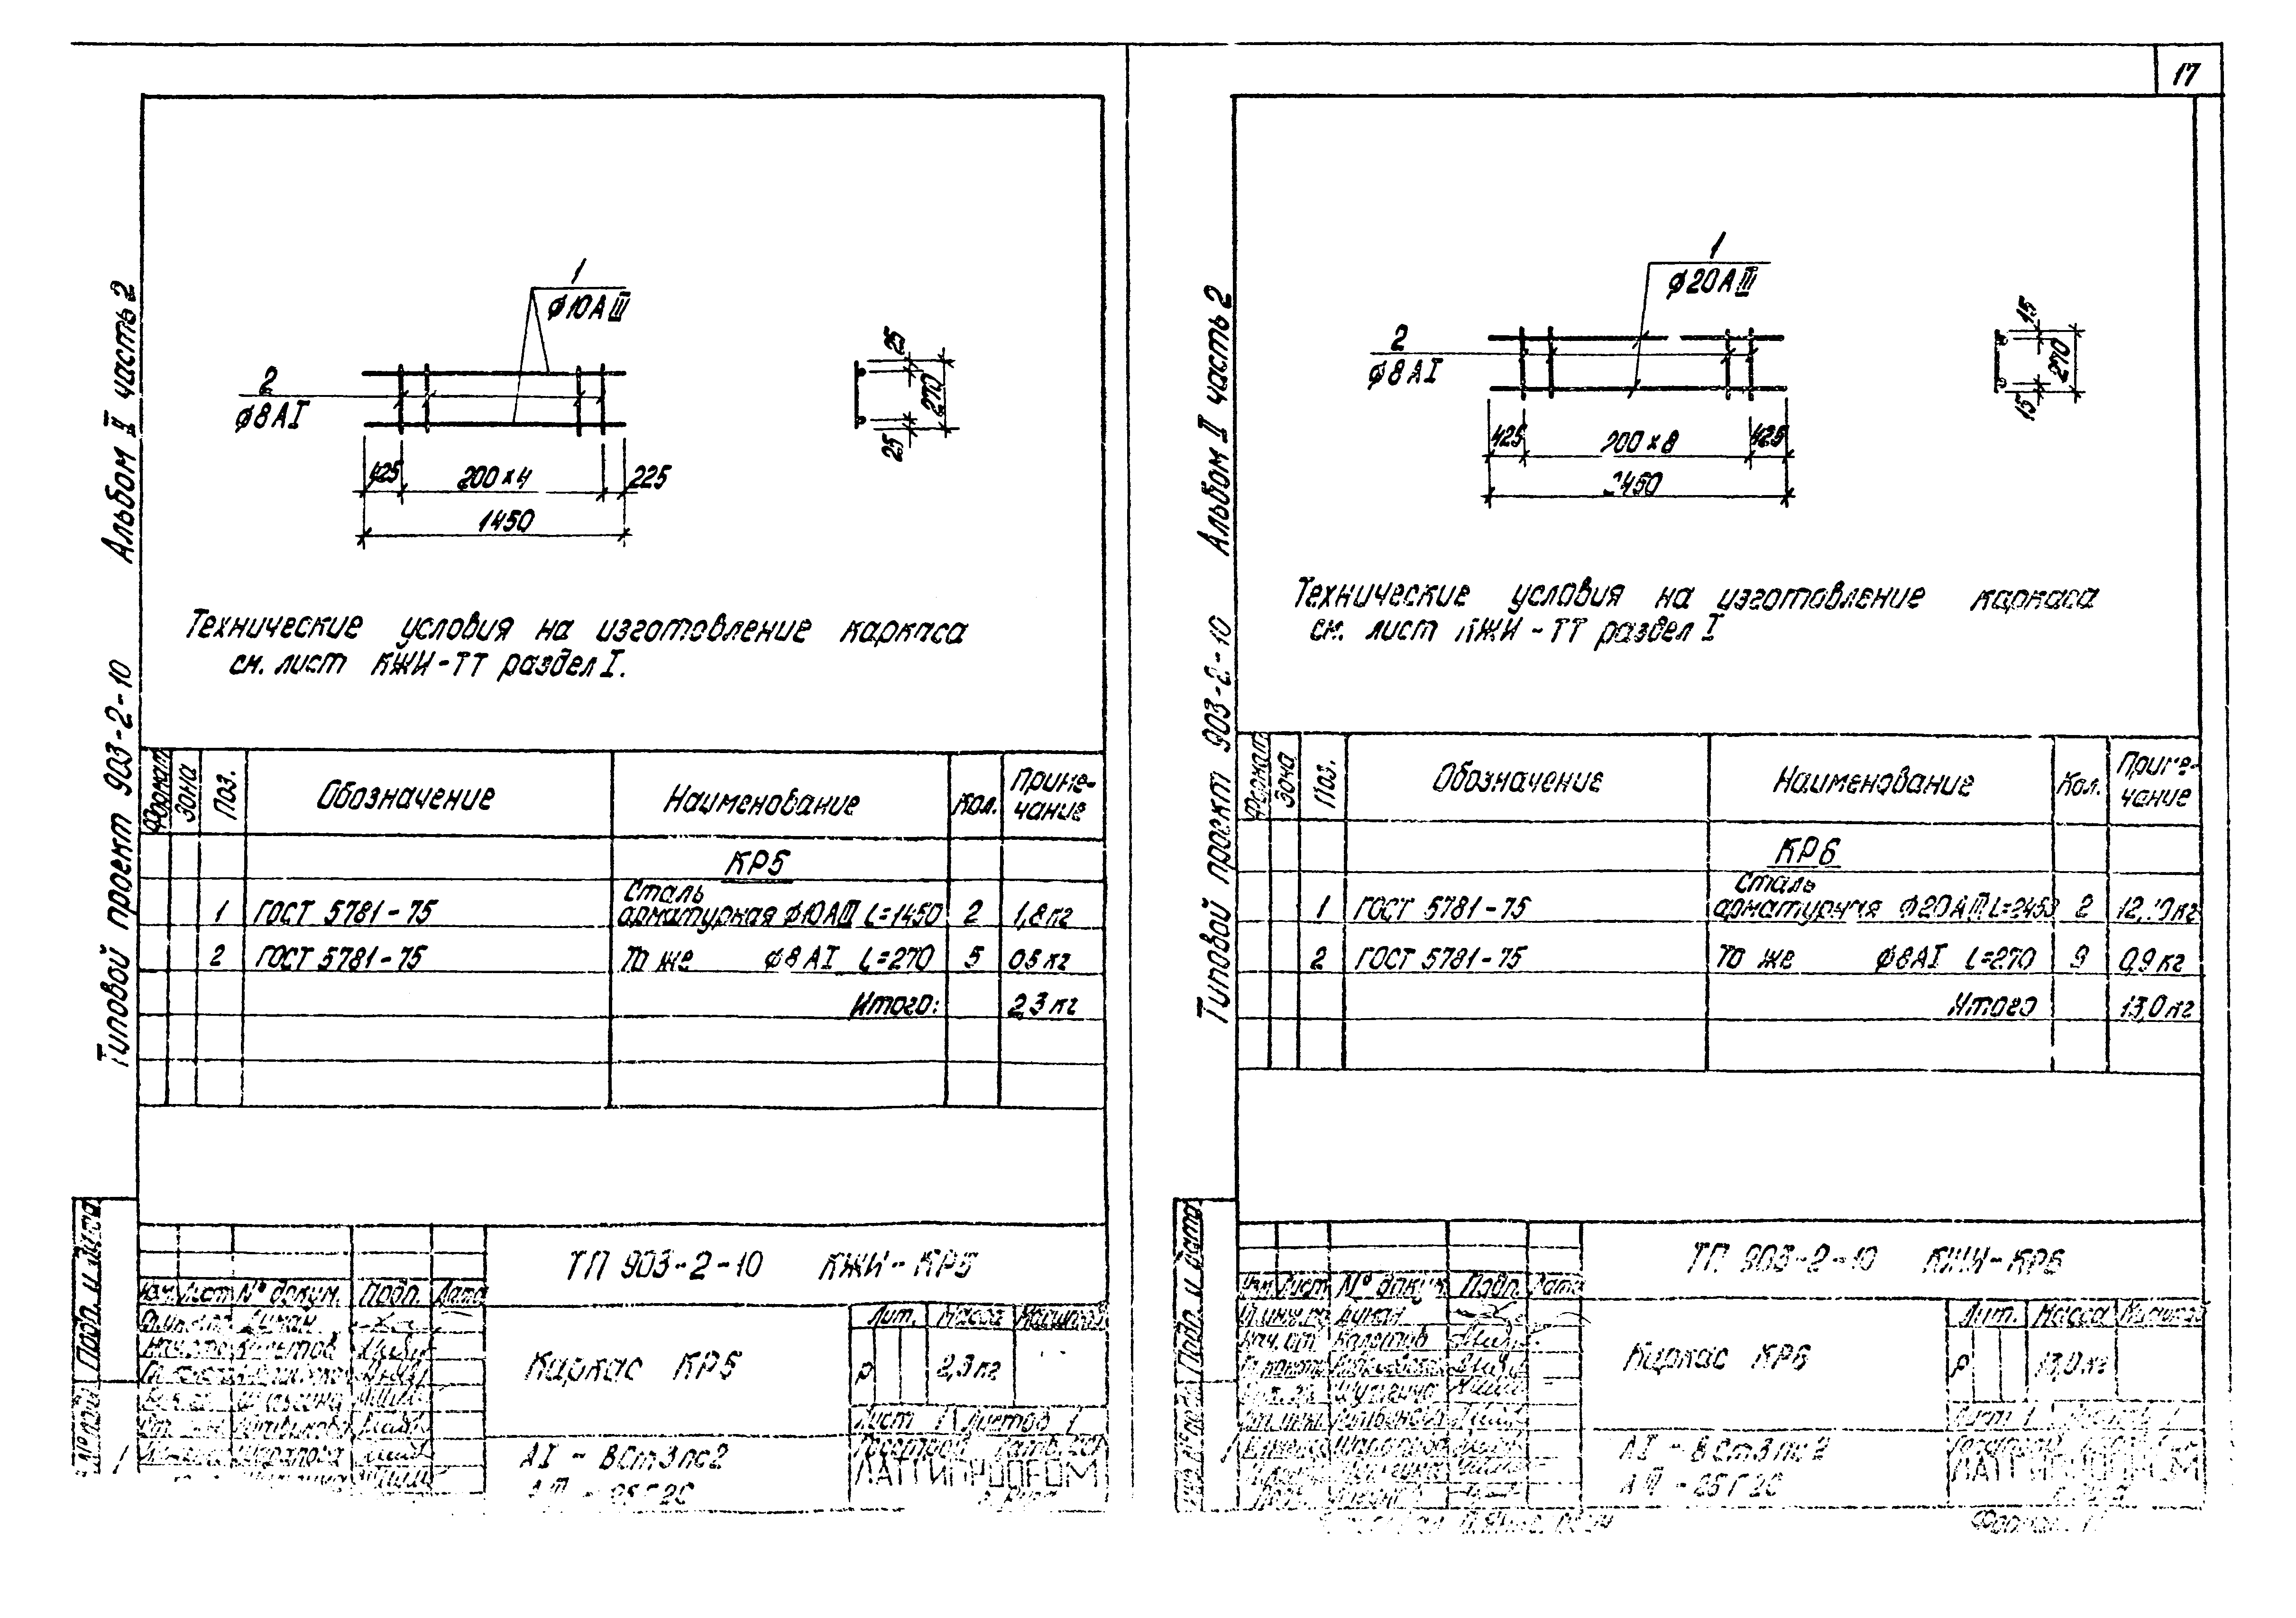 17
Типовой проект 903-2-10 Альбом II часть 2
1
φ10АIII
2
φ8АI
425
200×4
225
1450
25
270
25
Технические условия на изготовление каркаса
см. лист КЖИ-ТТ раздел I.
Формат Зона Поз. Обозначение Наименование Кол. Приме-
чание
КР5
Сталь
1 ГОСТ 5781-75 арматурная φ10АIII L=1450 2 1,8кг
2 ГОСТ 5781-75 То же φ8АI L=270 5 0,5кг
Итого: 2,3кг
Подп. и дата
ТП 903-2-10 КЖИ-КР5
Изм. Лист № докум. Подп. Дата
Каркас КР5
Лит. Масса Масштаб
Р 2,3кг
Лист 1 Листов 1
АI - ВСт3пс2
АIII - 25Г2С
ЛАТГИПРОПРОМ
Типовой проект 903-2-10 Альбом II часть 2
1
φ20АIII
2
φ8АI
425
200×8
425
2450
15
270
15
Технические условия на изготовление каркаса
см. лист КЖИ-ТТ раздел I
Формат Зона Поз. Обозначение Наименование Кол. Приме-
чание
КР6
Сталь
1 ГОСТ 5781-75 арматурная φ20АIII L=2450 2
2 ГОСТ 5781-75 То же φ8АI L=270 9 0,9кг
Итого 13,0кг
Подп. и дата
ТП 903-2-10 КЖИ-КР6
Изм. Лист № докум. Подп. Дата
Каркас КР6
Лит. Масса Масштаб
Р 13,0кг
Лист 1
АI - ВСт3пс2
АIII - 25Г2С
ЛАТГИПРОПРОМ